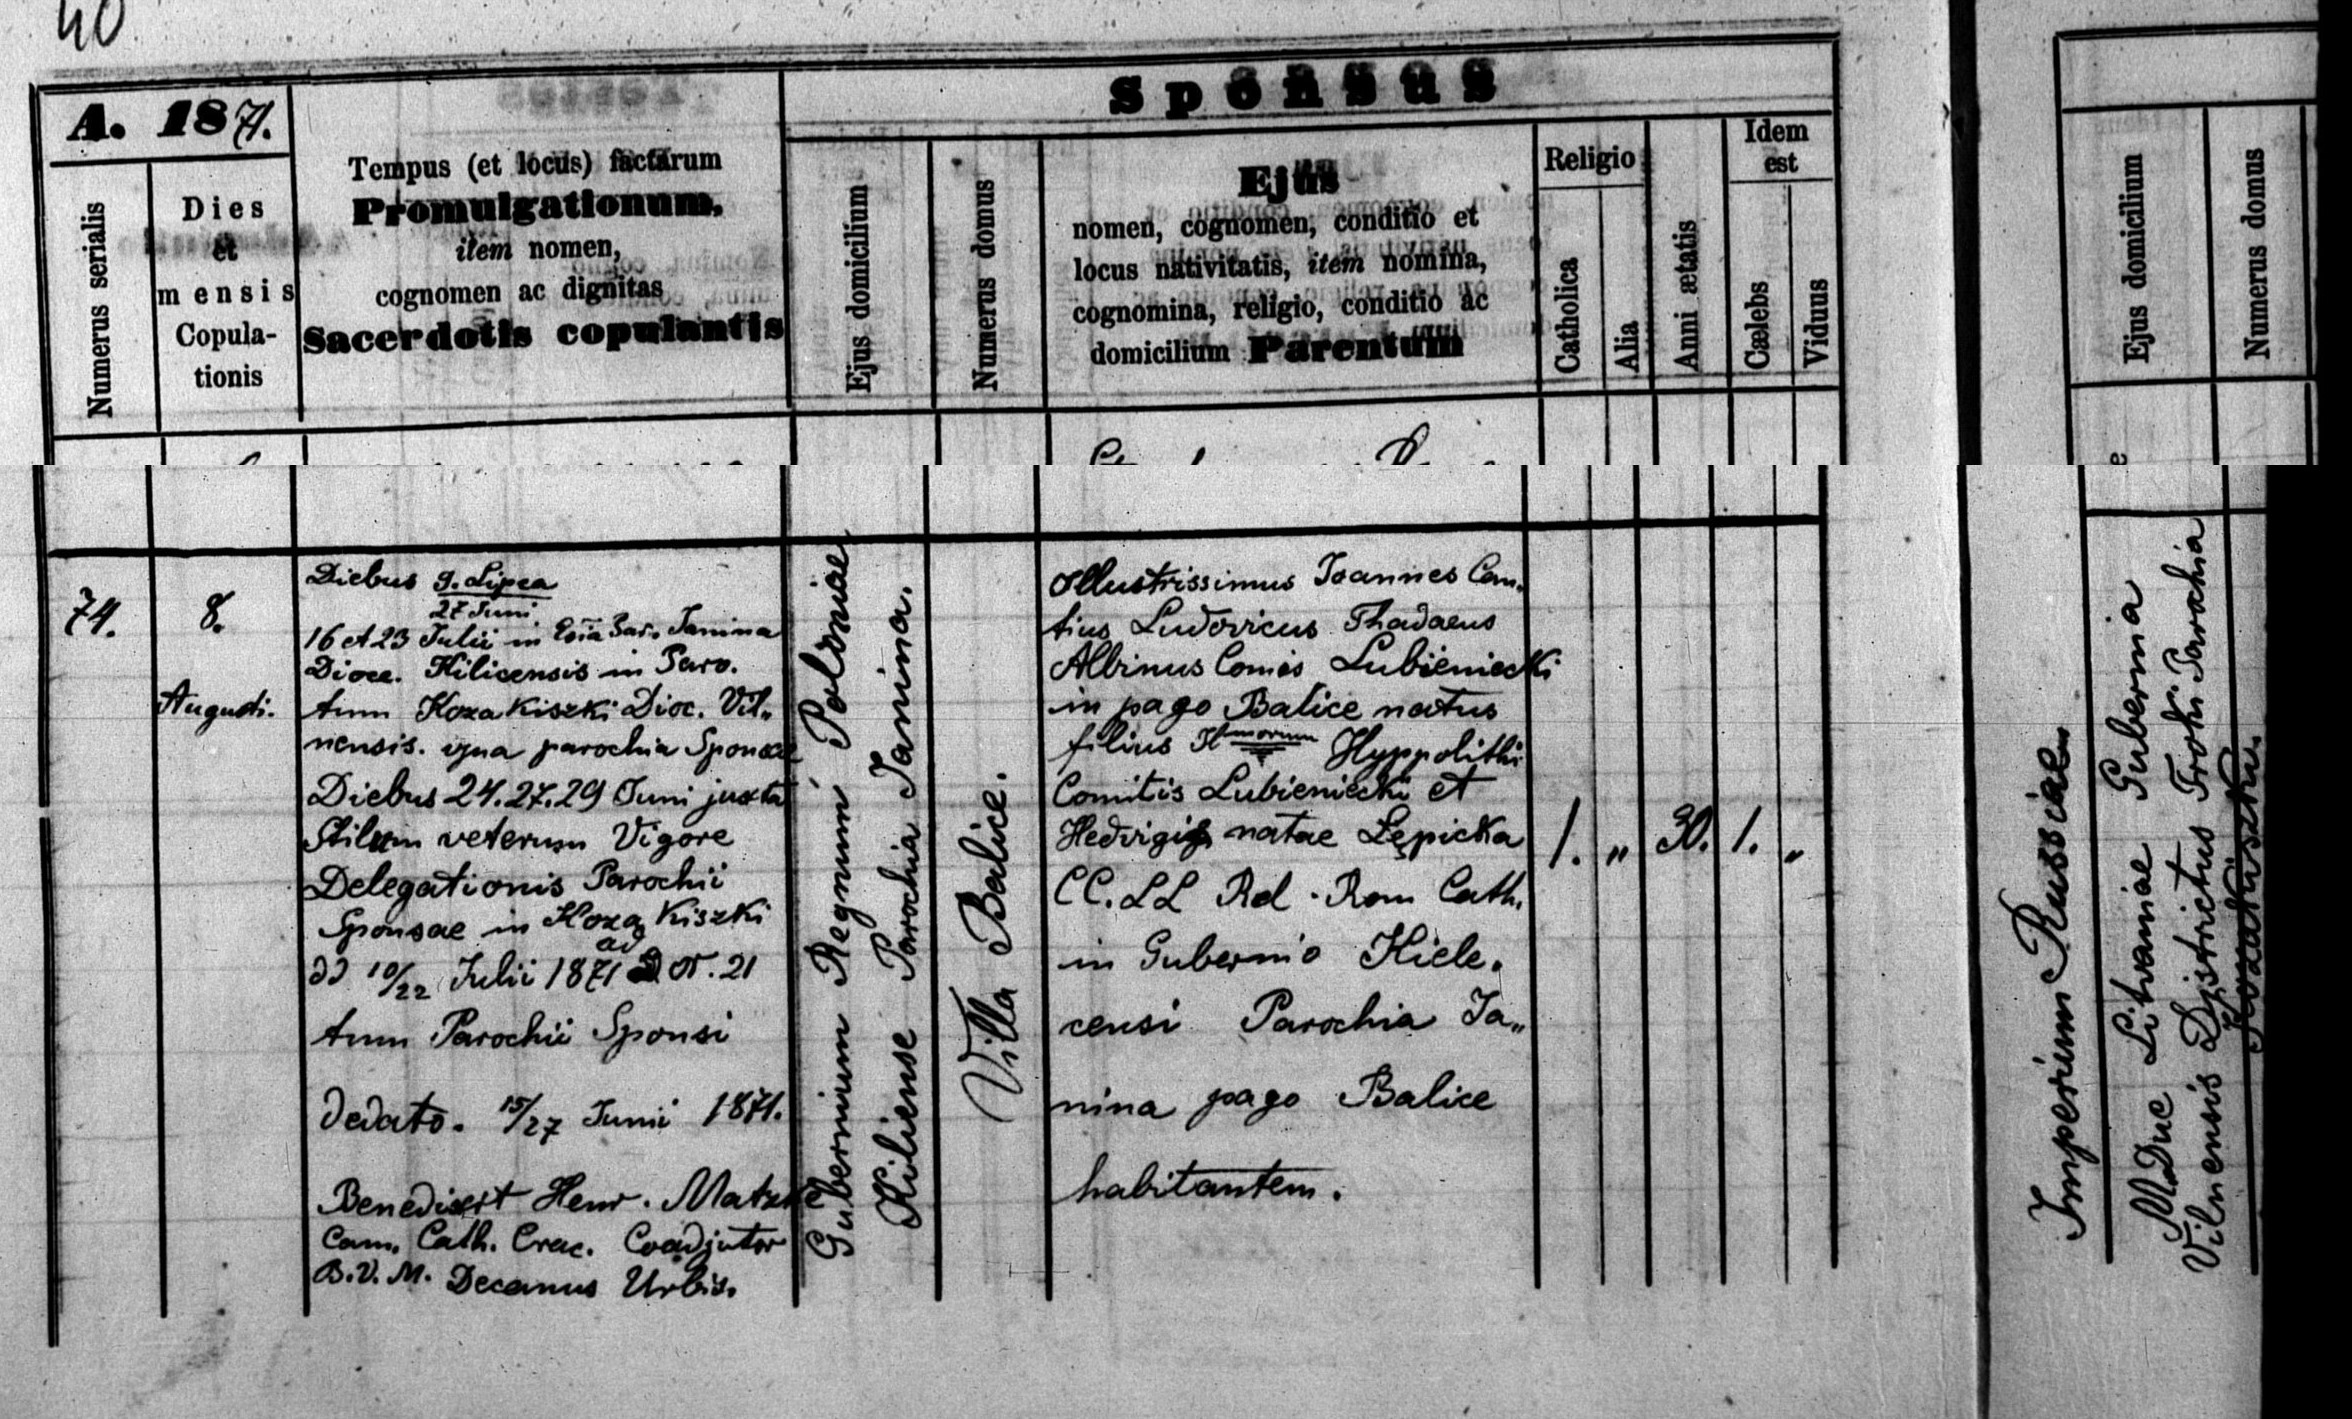 40
A. 1871.
Numerus serialis
Dies
et
mensis
Copula-
tionis
Tempus (et locus) factarum
Promulgationum,
item nomen,
cognomen ac dignitas
Sacerdotis copulantis
Sponsus
Ejus domicilium
Numerus domus
Ejus
nomen, cognomen, conditio et
locus nativitatis, item nomina,
cognomina, religio, conditio ac
domicilium Parentum
Religio
Catholica
Alia
Anni ætatis
Idem
est
Cælebs
Viduus
Ejus domicilium
Numerus domus
74.
8.
Augusti.
Diebus 9. Lipca
27 Juni
16 et 23 Julii in Ecia Par. Janina
Dioce. Kilicensis in Paro.
tum Koza Kiszki Dioc. Vil„
nensis. qua parochia Sponsae
Diebus 24. 27. 29 Juni juxta
Stilum veterum Vigore
Delegationis Parochii
Sponsae in Koza Kiszki
dd 10/22 Julii 1871 ad N. 21
tum Parochii Sponsi
dedato. 15/27 Junii 1871.
Benedict Henr.
Can. Cath. Crac. Coadjutor
B.V.M. Decanus Urbis.
Gubernium Regnum Poloniae
Kiliense Parochia Janina.
Villa Balice.
Illustrissimus Joannes Can„
tius Ludovicus Thadaeus
Albinus Comes Lubieniecki
in pago Balice natus
filius Illmorum Hyppolithi
Comitis Lubieniecki et
Hedvigis natae Łępicka
CC. LL Rel. Rom Cath.
in Gubernio Kiele„
censi Parochia Ja„
nina pago Balice
habitantem.
1. „ 30. 1. „
Imperium Russiae
M. Duc Litvaniae Gubernia
Vilnensis Districtus Troki Parochia